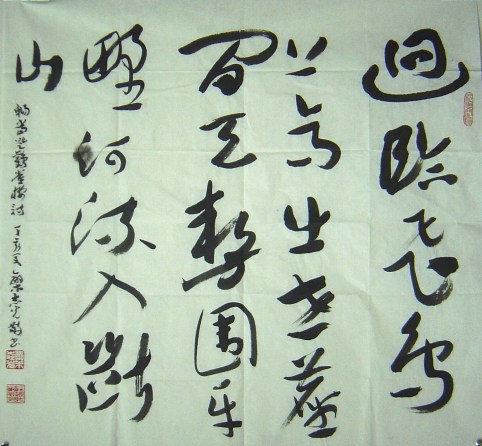 逈臨飛鳥
上高出世塵
間天勢圍平
野河流入斷
山
暢當登鸛雀樓詩 丁亥夏 書